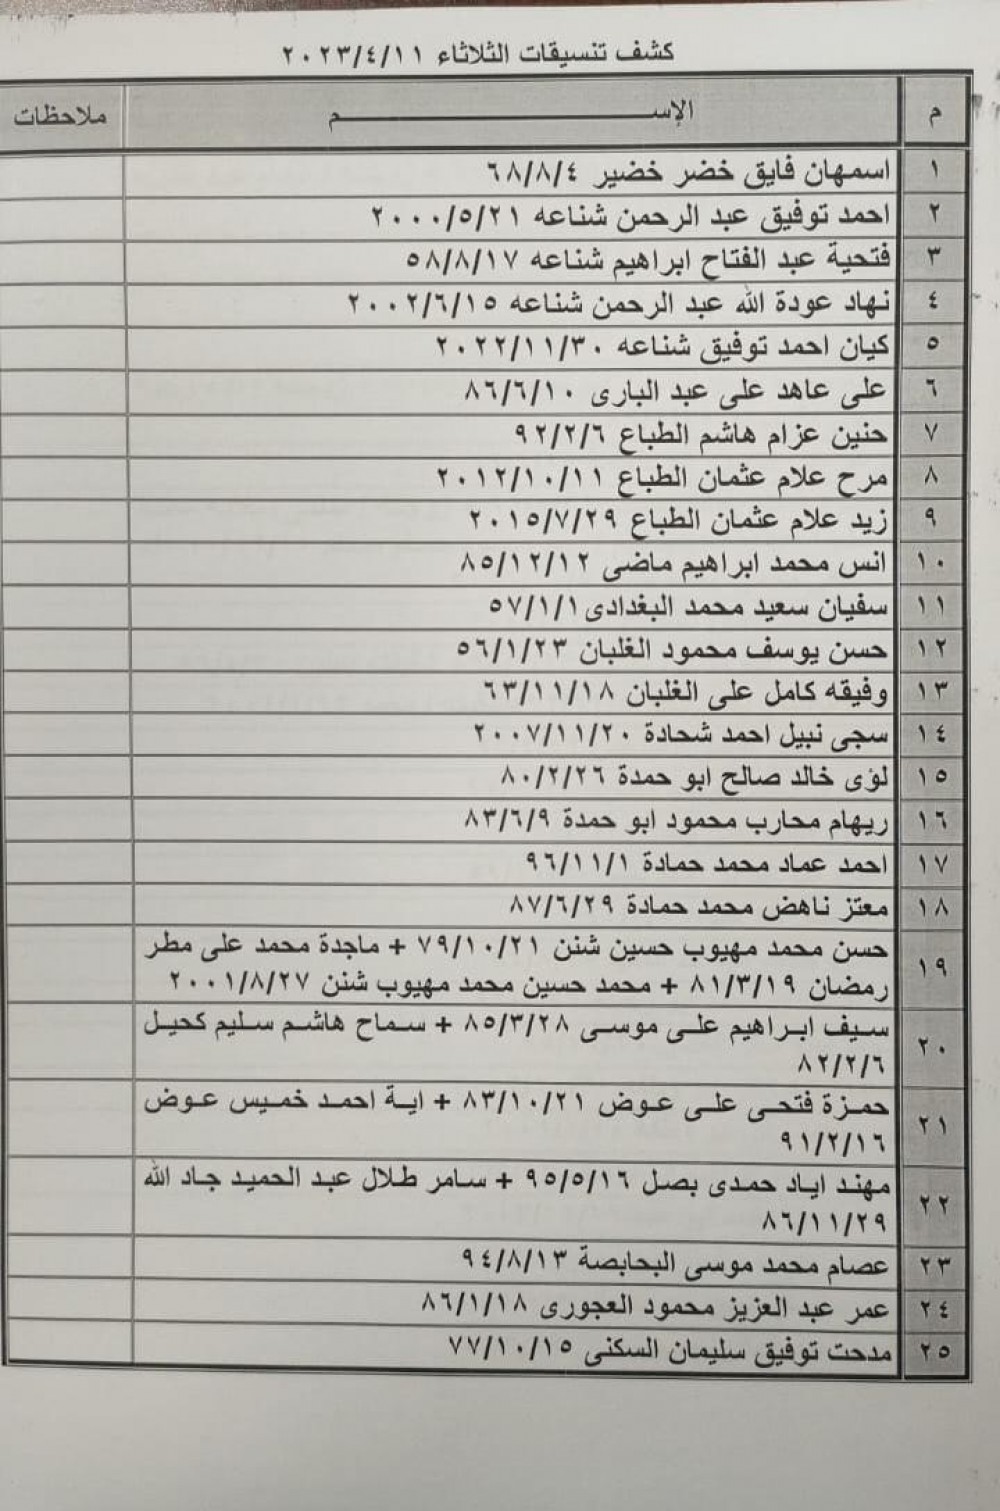 كشف تنسيقات الثلاثاء ٢٠٢٣/٤/١١
م الإســـــــم ملاحظات
١ اسمهان فايق خضر خضير ٦٨/٨/٤
٢ احمد توفيق عبد الرحمن شناعه ٢٠٠٠/٥/٢١
٣ فتحية عبد الفتاح ابراهيم شناعه ٥٨/٨/١٧
٤ نهاد عودة الله عبد الرحمن شناعه ٢٠٠٢/٦/١٥
٥ كيان احمد توفيق شناعه ٢٠٢٢/١١/٣٠
٦ على عاهد على عبد البارى ٨٦/٦/١٠
٧ حنين عزام هاشم الطباع ٩٢/٢/٦
٨ مرح علام عثمان الطباع ٢٠١٢/١٠/١١
٩ زيد علام عثمان الطباع ٢٠١٥/٧/٢٩
١٠ انس محمد ابراهيم ماضى ٨٥/١٢/١٢
١١ سفيان سعيد محمد البغدادى ٥٧/١/١
١٢ حسن يوسف محمود الغلبان ٥٦/١/٢٣
١٣ وفيقه كامل على الغلبان ٦٣/١١/١٨
١٤ سجى نبيل احمد شحادة ٢٠٠٧/١١/٢٠
١٥ لؤى خالد صالح ابو حمدة ٨٠/٢/٢٦
١٦ ريهام محارب محمود ابو حمدة ٨٣/٦/٩
١٧ احمد عماد محمد حمادة ٩٦/١١/١
١٨ معتز ناهض محمد حمادة ٨٧/٦/٢٩
١٩ حسن محمد مهيوب حسين شنن ٧٩/١٠/٢١ + ماجدة محمد على مطر
رمضان ٨١/٣/١٩ + محمد حسين محمد مهيوب شنن ٢٠٠١/٨/٢٧
٢٠ سيف ابراهيم على موسى ٨٥/٣/٢٨ + سماح هاشم سليم كحيل
٨٢/٢/٦
٢١ حمزة فتحى على عوض ٨٣/١٠/٢١ + اية احمد خميس عوض
٩١/٢/١٦
٢٢ مهند اياد حمدى بصل ٩٥/٥/١٦ + سامر طلال عبد الحميد جاد الله
٨٦/١١/٢٩
٢٣ عصام محمد موسى البحابصة ٩٤/٨/١٣
٢٤ عمر عبد العزيز محمود العجورى ٨٦/١/١٨
٢٥ مدحت توفيق سليمان السكنى ٧٧/١٠/١٥